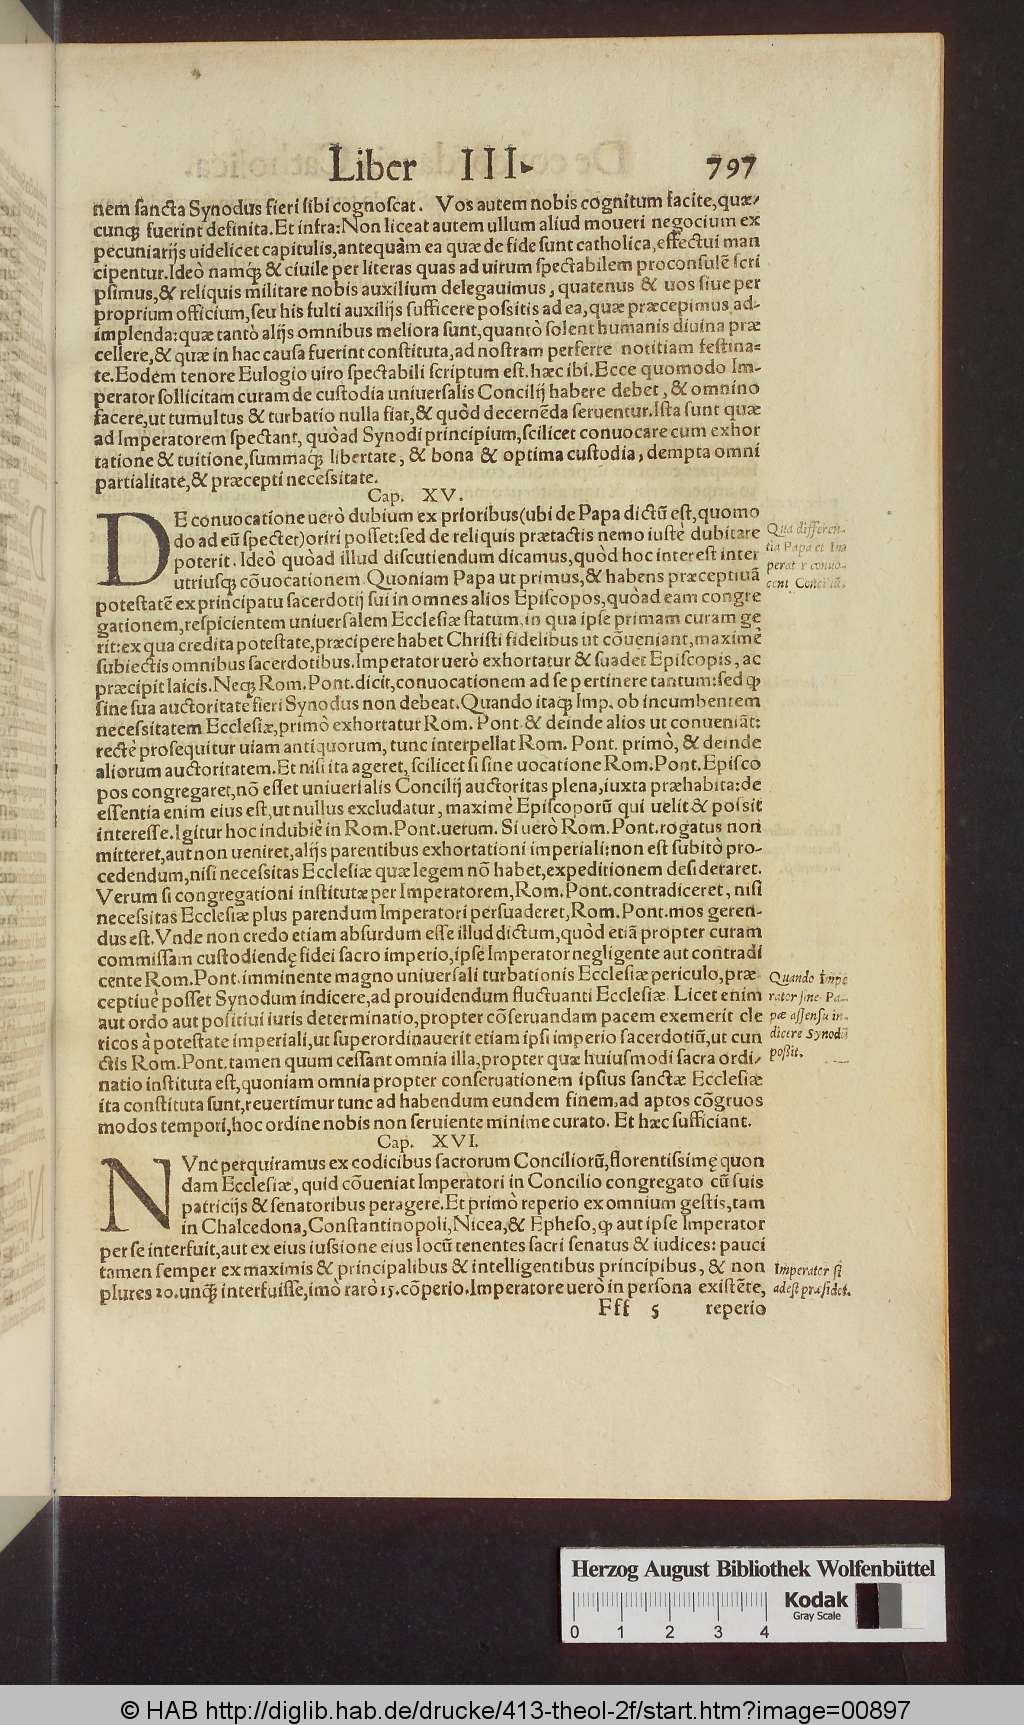 Liber III. 797
nem sancta Synodus fieri sibi cognoscat. Vos autem nobis cognitum facite, quæ-
cunq; fuerint definita. Et infra: Non liceat autem ullum aliud moueri negocium ex
pecuniarijs uidelicet capitulis, antequàm ea quæ de fide sunt catholica, effectui man
cipentur. Ideò namq; & ciuile per literas quas ad uirum spectabilem proconsulē scri
psimus, & reliquis militare nobis auxilium delegauimus, quatenus & uos siue per
proprium officium, seu his fulti auxilijs sufficere possitis ad ea, quæ præcepimus ad-
implenda: quæ tantò alijs omnibus meliora sunt, quantò solent humanis diuina præ
cellere, & quæ in hac causa fuerint constituta, ad nostram perferre notitiam festina-
te. Eodem tenore Eulogio uiro spectabili scriptum est. hæc ibi. Ecce quomodo Im-
perator sollicitam curam de custodia uniuersalis Concilij habere debet, & omnino
facere, ut tumultus & turbatio nulla fiat, & quòd decernēda seruentur. Ista sunt quæ
ad Imperatorem spectant, quòad Synodi principium, scilicet conuocare cum exhor
tatione & tuitione, summaq; libertate, & bona & optima custodia, dempta omni
partialitate, & præcepti necessitate.
Cap. XV.
DE conuocatione uerò dubium ex prioribus (ubi de Papa dictū est, quomo
do ad eū spectet) oriri posset: sed de reliquis prætactis nemo iustè dubitare
poterit. Ideò quòad illud discutiendum dicamus, quòd hoc interest inter
utriusq; cōuocationem. Quoniam Papa ut primus, & habens præceptiuā
potestatē ex principatu sacerdotij sui in omnes alios Episcopos, quòad eam congre
gationem, respicientem uniuersalem Ecclesiæ statum, in qua ipse primam curam ge
rit: ex qua credita potestate, præcipere habet Christi fidelibus ut cōueniant, maximè
subiectis omnibus sacerdotibus. Imperator uerò exhortatur & suadet Episcopis, ac
præcipit laicis. Neq; Rom. Pont. dicit, conuocationem ad se pertinere tantum: sed ꝙ
sine sua auctoritate fieri Synodus non debeat. Quando itaq; Imp. ob incumbentem
necessitatem Ecclesiæ, primò exhortatur Rom. Pont. & deinde alios ut conueniāt:
rectè prosequitur uiam antiquorum, tunc interpellat Rom. Pont. primò, & deinde
aliorum auctoritatem. Et nisi ita ageret, scilicet si sine uocatione Rom. Pont. Episco
pos congregaret, nō esset uniuersalis Concilij auctoritas plena, iuxta præhabita: de
essentia enim eius est, ut nullus excludatur, maximè Episcoporū qui uelit & possit
interesse. Igitur hoc indubiè in Rom. Pont. uerum. Si uerò Rom. Pont. rogatus non
mitteret, aut non ueniret, alijs parentibus exhortationi imperiali: non est subitò pro-
cedendum, nisi necessitas Ecclesiæ quæ legem nō habet, expeditionem desideraret.
Verum si congregationi institutæ per Imperatorem, Rom. Pont. contradiceret, nisi
necessitas Ecclesiæ plus parendum Imperatori persuaderet, Rom. Pont. mos geren-
dus est. Vnde non credo etiam absurdum esse illud dictum, quòd etiā propter curam
commissam custodiendę fidei sacro imperio, ipse Imperator negligente aut contradi
cente Rom. Pont. imminente magno uniuersali turbationis Ecclesiæ periculo, præ
ceptiuè posset Synodum indicere, ad prouidendum fluctuanti Ecclesiæ. Licet enim
aut ordo aut positiui iuris determinatio, propter cōseruandam pacem exemerit cle
ricos à potestate imperiali, ut superordinauerit etiam ipsi imperio sacerdotiū, ut cun
ctis Rom. Pont. tamen quum cessant omnia illa, propter quæ huiusmodi sacra ordi-
natio instituta est, quoniam omnia propter conseruationem ipsius sanctæ Ecclesiæ
ita constituta sunt, reuertimur tunc ad habendum eundem finem, ad aptos cōgruos
modos tempori, hoc ordine nobis non seruiente minime curato. Et hæc sufficiant.
Qua differen-
tia Papa et Im
perator conuo-
cent Conciliū.
Quando Impe
rator sine Pa-
pæ assensu in-
dicere Synodū
possit.
Cap. XVI.
NVnc perquiramus ex codicibus sacrorum Conciliorū, florentissimę quon
dam Ecclesiæ, quid cōueniat Imperatori in Concilio congregato cū suis
patricijs & senatoribus peragere. Et primò reperio ex omnium gestis, tam
in Chalcedona, Constantinopoli, Nicea, & Epheso, ꝙ aut ipse Imperator
per se interfuit, aut ex eius iussione eius locū tenentes sacri senatus & iudices: pauci
tamen semper ex maximis & principalibus & intelligentibus principibus, & non
plures 20. unq; interfuisse, imò rarò 15. cōperio. Imperatore uerò in persona existēte,
Imperator si
adest præsidet.
Fff 5 reperio
Herzog August Bibliothek Wolfenbüttel
Kodak
Gray Scale
0 1 2 3 4
© HAB http://diglib.hab.de/drucke/413-theol-2f/start.htm?image=00897